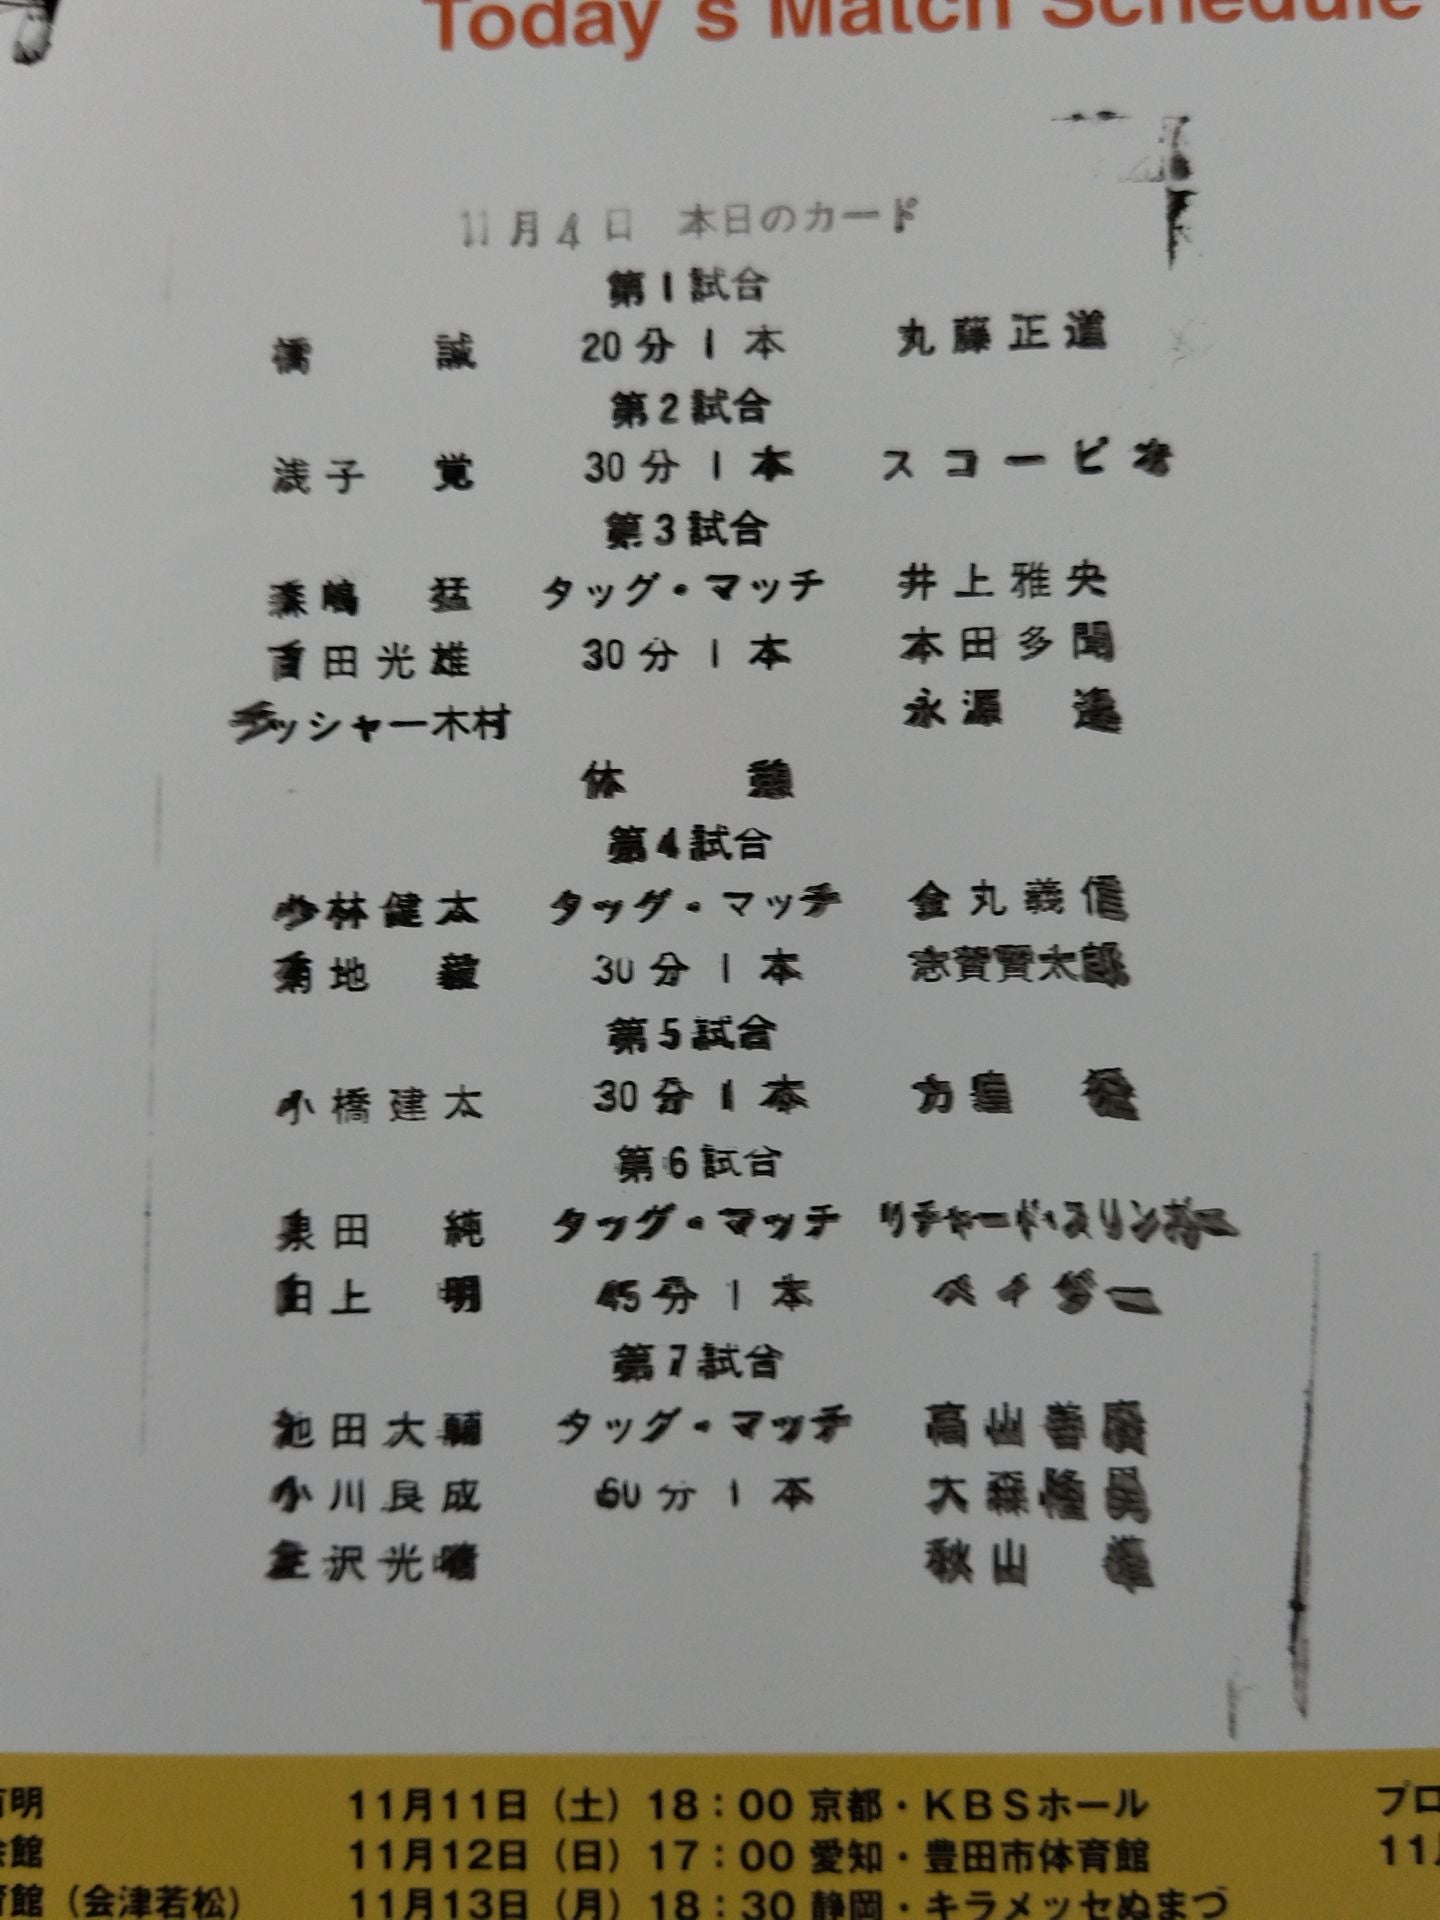 Today's Match Schedule
11月4日 本日のカード
第1試合
橋 誠 20分1本 丸藤正道
第2試合
浅子 覚 30分1本 スコーピオ
第3試合
森嶋 猛 タッグ・マッチ 井上雅央
百田光雄 30分1本 本田多聞
ラッシャー木村 永源 遙
休 憩
第4試合
小林健太 タッグ・マッチ 金丸義信
菊地 毅 30分1本 志賀賢太郎
第5試合
小橋建太 30分1本 力皇
第6試合
泉田 純 タッグ・マッチ リチャード・スリンガー
田上 明 45分1本 ベイダー
第7試合
池田大輔 タッグ・マッチ 高山善廣
小川良成 60分1本 大森隆男
三沢光晴 秋山 準
明 11月11日(土)18:00 京都・KBSホール プロ
館 11月12日(日)17:00 愛知・豊田市体育館 11
館(会津若松) 11月13日(月)18:30 静岡・キラメッセぬまづ